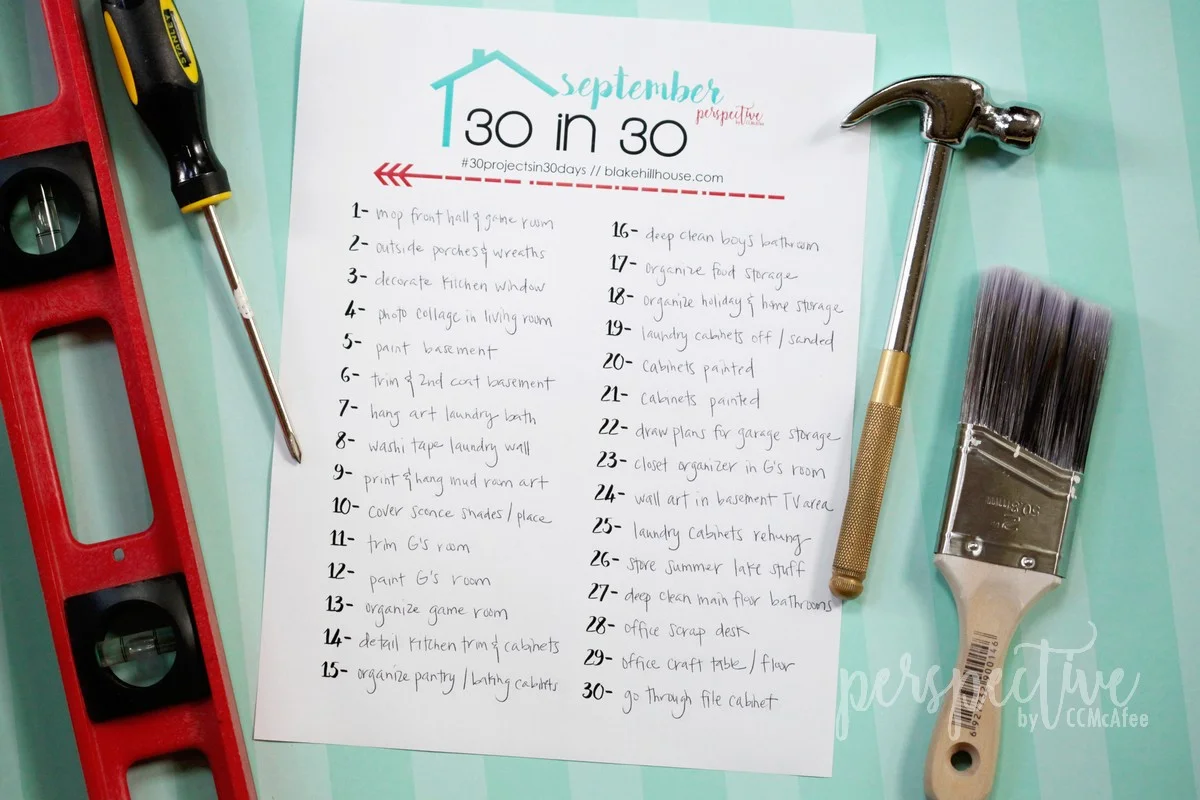 STANLEY
september
perspective
30 in 30
#30projectsin30days // blakehillhouse.com
1- mop front hall & game room
2- outside porches & wreaths
3- decorate kitchen window
4- photo collage in living room
5- paint basement
6- trim & 2nd coat basement
7- hang art laundry bath
8- washi tape laundry wall
9- print & hang mud room art
10- cover sconce shades/place
11- trim G's room
12- paint G's room
13- organize game room
14- detail kitchen trim & cabinets
15- organize pantry/baking cabinets
16- deep clean boys bathroom
17- organize food storage
18- organize holiday & home storage
19- laundry cabinets off / sanded
20- cabinets painted
21- cabinets painted
22- draw plans for garage storage
23- closet organizer in G's room
24- wall art in basement TV area
25- laundry cabinets rehung
26- store summer lake stuff
27- deep clean main floor bathrooms
28- office scrap desk
29- office craft table/floor
30- go through file cabinet
perspective
by CCMcAfee